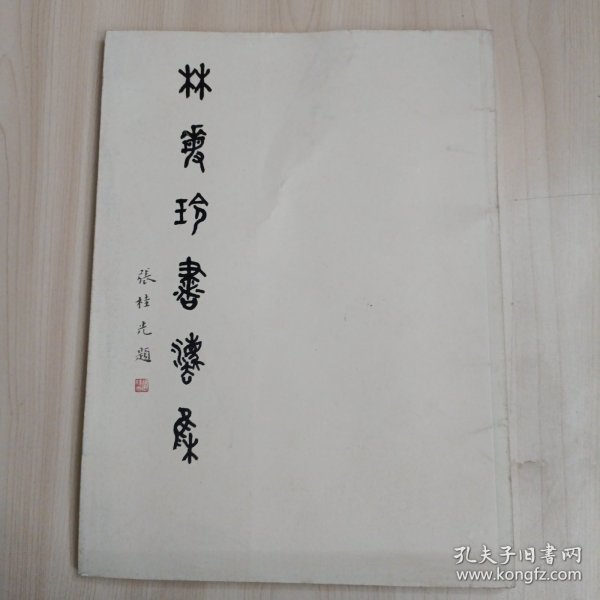 林爱玲書法集
張桂光題
孔夫子旧書网
www.kongfz.com